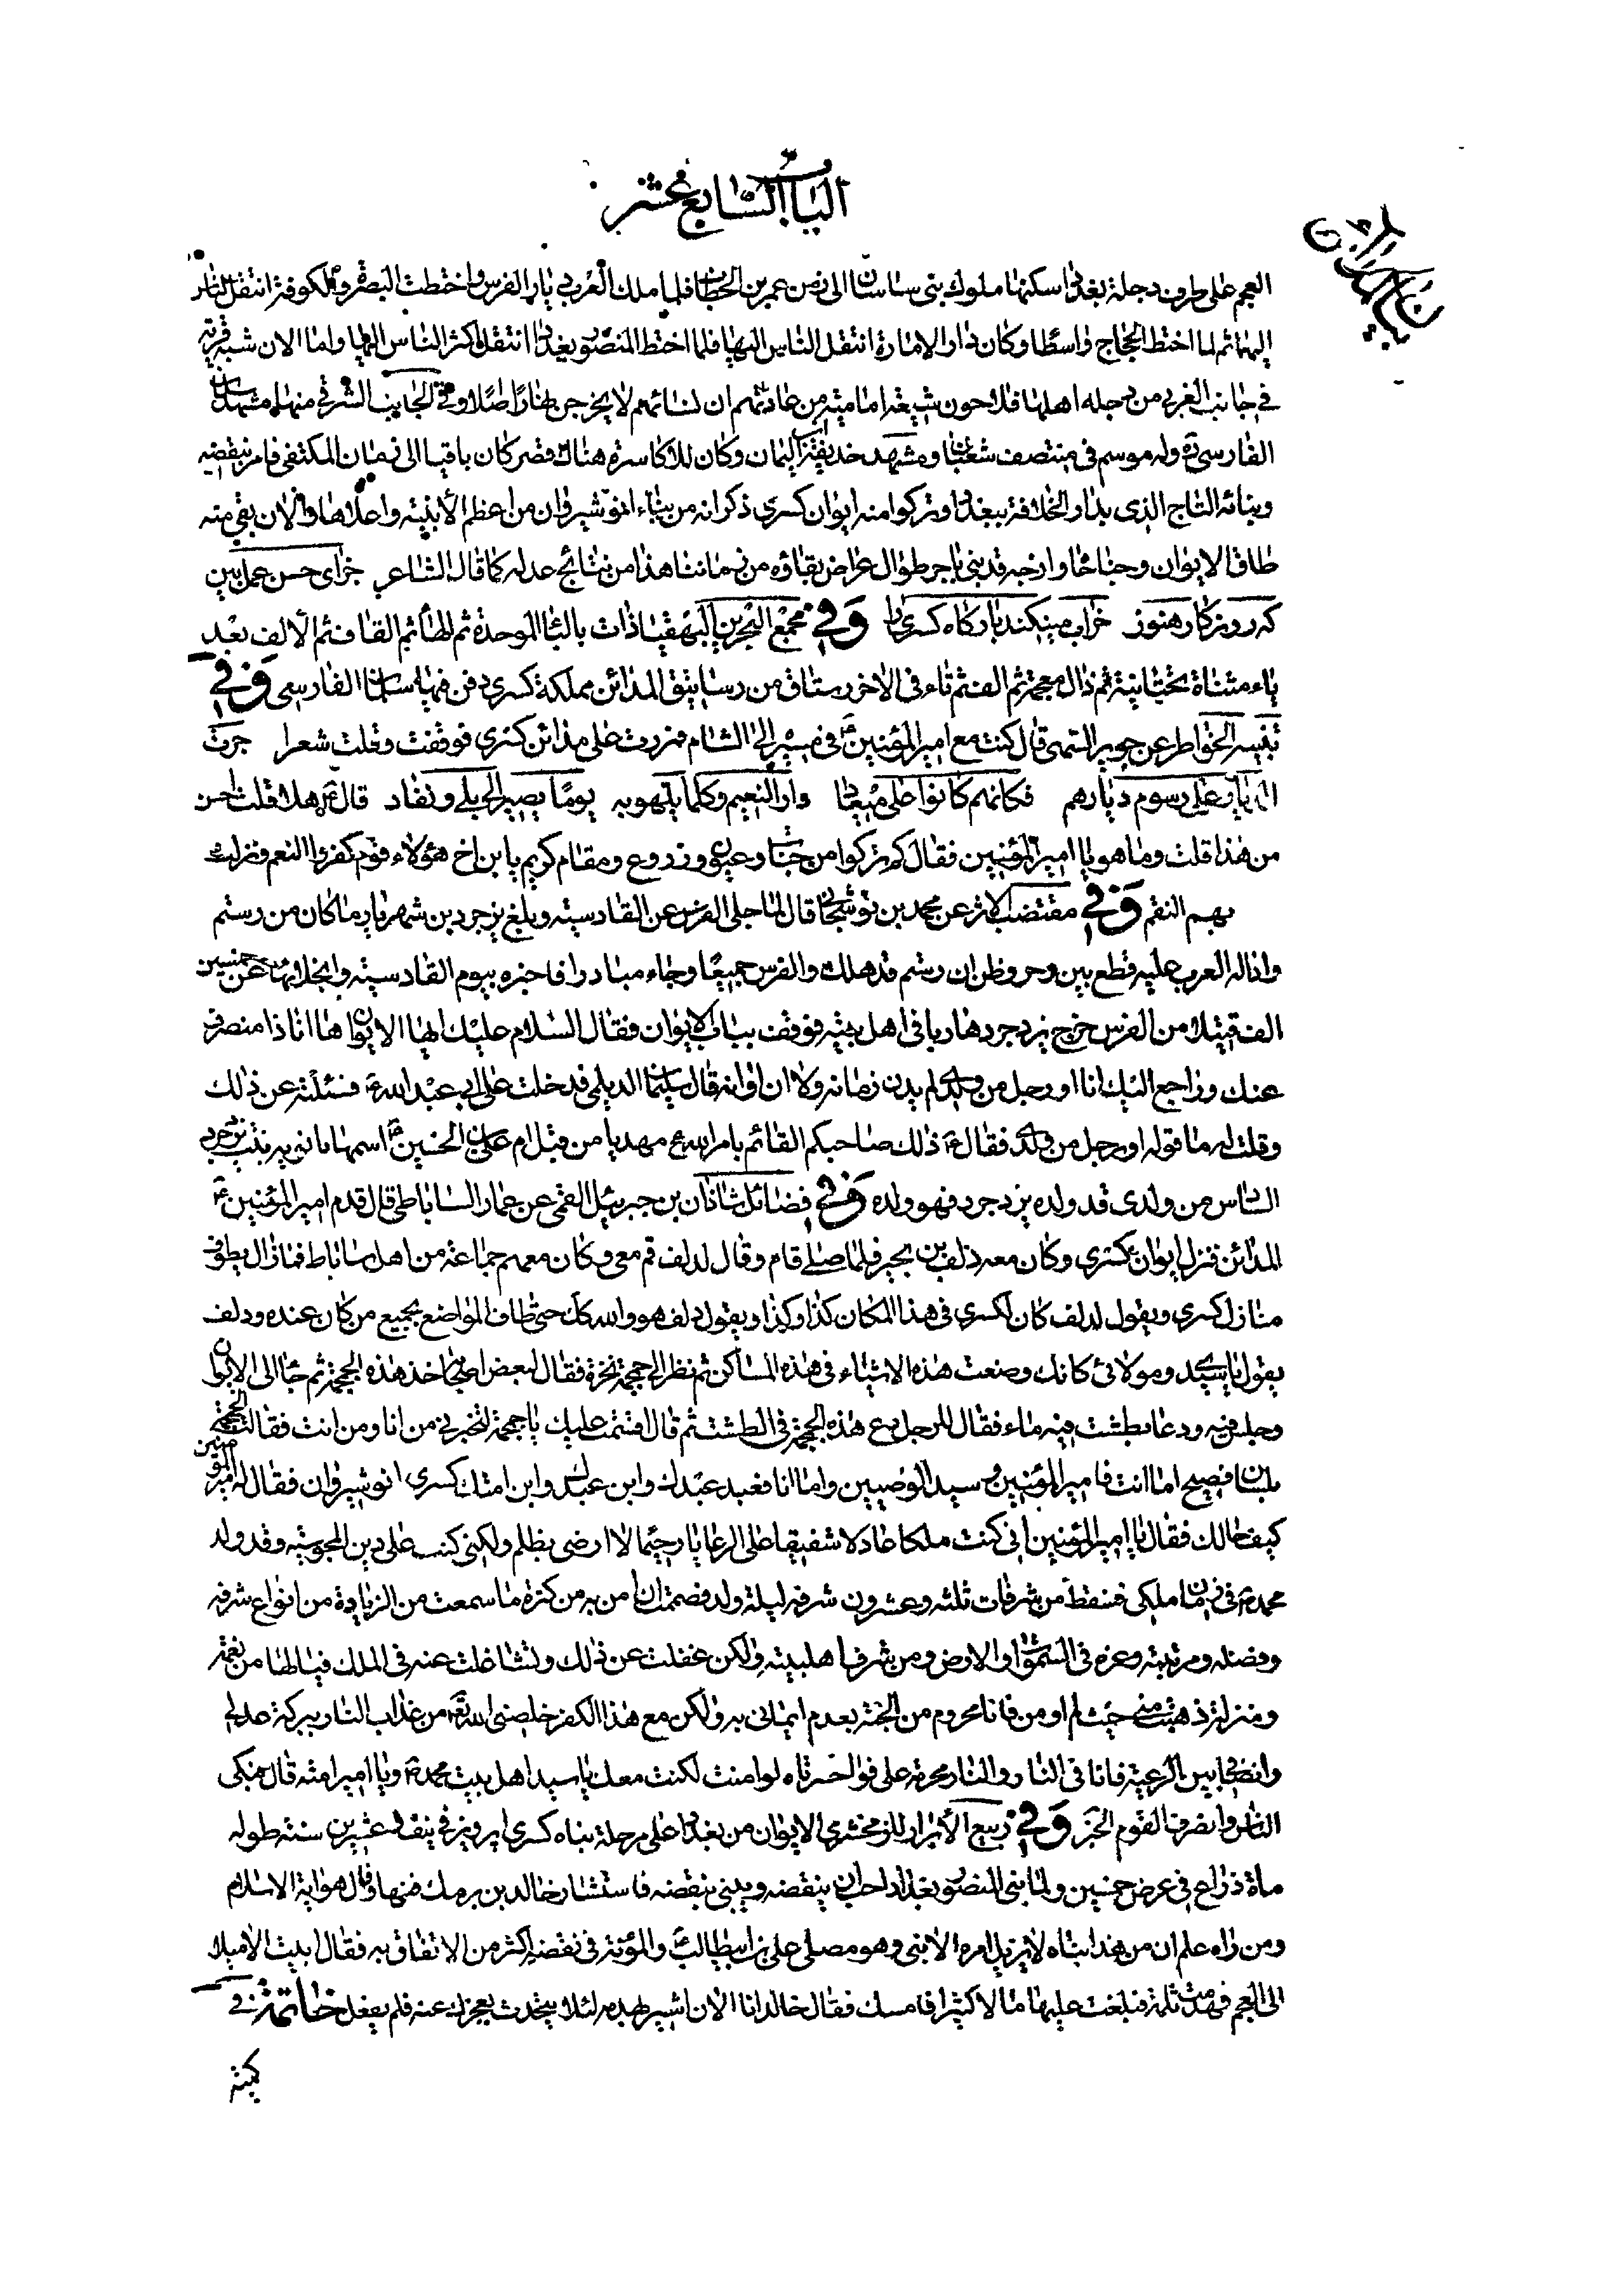 الباب السابع عشر
العجم على طرف دجلة بغداد اسكنها ملوك بنى ساسان الى زمن عمر بن الخطاب فلما ملك العرب ديار الفرس واختطت البصرة والكوفة انتقل الناس
اليهما ثم لما اختط الحجاج واسطا وكان دار الامارة انتقل الناس اليها فلما اختط المنصور بغداد انتقل اكثر الناس اليها واما الان شبه قرية
فى جانب الغربى من دجله اهلها فلاحون شيعة امامية من عادتهم ان نسائهم لا يخرجن نهارا اصلا وفى الجانب الشرقى منها مشهد سلمان
الفارسى ره وله موسم فى منتصف شعبان ومشهد حذيفة بن اليمان وكان للاكاسرة هناك قصر كان باقيا الى زمان المكتفى فامر بنقضه
وبنائه التاج الذى بدار الخلافة ببغداد وتركوا منه ايوان كسرى ذكر انه من بناء انوشيروان من اعظم الأبنية واعلاها والان بقى منه
طاق الايوان وجناحاه وازجه قد بنى باجر طوال عراض بقاؤه من زماننا هذا من نتائج عدله كما قال الشاعر جزاى حسن عمل بين
كه روزكار هنوز خراب مىنكند باركاه كسرى را وفى مجمع البحرين البهقباذات بالباء الموحدة ثم الهاء ثم القاف ثم الالف بعد
ياء مثناة تحتانية ثم ذال معجمة ثم الف ثم تاء فى الاخر رستاق من رساتيق المدائن مملكة كسرى دفن فيها سلمان الفارسى وفى
تنبيه الخواطر عن جوير التيمى قال كنت مع امير المؤمنين ع فى مسيره الى الشام فمررت على مدائن كسرى فوقفت وقلت شعرا جرت
الرياح على رسوم ديارهم فكانهم كانوا على ميعاد وارى النعيم وكلما يلهى به يوما يصير الى بلى ونفاد قال ع هلا قلت احسن
من هذا قلت وما هو يا امير المؤمنين فقال كم تركوا من جنات وعيون وزروع ومقام كريم يا بن اخ هؤلاء قوم كفروا النعم فنزلت
بهم النقم وفى مقتضب الاثر عن محمد بن نوشجان قال لما جلى الفرس عن القادسية وبلغ يزجرد بن شهريار ما كان من رستم
وادالة العرب عليه وظن ان رستم قد هلك والفرس جميعا وجاء مبادرا فاخبره بيوم القادسية وانجلائها عن خمسين
الف قتيلا من الفرس خرج يزدجرد هاربا فى اهل بيته فوقف بباب الايوان فقال السلام عليك ايها الايوان ها انا ذا منصرف
عنك وراجع اليك انا او رجل من ولدى لم يدن زمانه ولا ان اوانه قال سليمان الديلمى فدخلت على ابى عبد الله ع فسئلته عن ذلك
وقلت له ما قوله او رجل من ولدى فقال ع ذلك صاحبكم القائم بامر الله ع مهديا من قبل ام على بن الحسين ع اسمها بانويه بنت يزدجرد
السادس من ولدى قد ولده يزدجرد فهو ولده وفى فضائل شاذان بن جبرئيل القمى عن عمار الساباطى قال قدم امير المؤمنين ع
المدائن فنزل ايوان كسرى وكان معه دلف بن بحير فلما صلى قام وقال لدلف قم معى وكان معهم جماعة من اهل ساباط فما زال يطوف
منازل كسرى ويقول لدلف كان لكسرى فى هذا المكان كذا وكذا ويقول دلف هو والله كك حتى طاف المواضع بجميع من كان عنده ودلف
يقول يا سيدى ومولائى كانك وضعت هذه الاشياء فى هذه المساكن ثم نظر الى جمجمة نخرة فقال لبعض اصحابه خذ هذه الجمجمة ثم جاء الى الايوان
وجلس فيه ودعا بطشت فيه ماء فقال للرجل دع هذه الجمجمة فى الطشت ثم قال اقسمت عليك يا جمجمة لتخبرنى من انا ومن انت فقالت الجمجمة
بلسان فصيح اما انت فامير المؤمنين وسيد الوصيين واما انا فعبد عبدك وابن عبدك وابن امتك كسرى انوشيروان فقال له امير المؤمنين
كيف حالك فقال يا امير المؤمنين انى كنت ملكا عادلا شفيقا على الرعايا رحيما لا ارضى بظلم ولكنى كنت على دين المجوسية وقد ولد
محمد ص فى زمان ملكى فسقط من شرفات ثلثه وعشرون شرفه ليلة ولد فهممت ان امن به من كثرة ما سمعت من الزيادة من انواع شرفه
وفضله ومرتبته وعزه فى السموات والارض ومن شرف اهلبيته ولكن غفلت عن ذلك وتشاغلت عنه فى الملك فيا لها من نعمة
ومنزلة ذهبت منى حيث لم اومن فانا محروم من الجنة بعدم ايمانى به ولكن مع هذا الكفر خلصنى الله تع من عذاب النار ببركة عدلى
وانصافى بين الرعية فانا فى النار والنار محرمة على فواحسرتاه لو امنت لكنت معك يا سيد اهل بيت محمد ص ويا امير امته قال فبكى
الناس وانصرف القوم الخبر وفى ربيع الأبرار للزمخشرى الايوان من بغداد على مرحلة بناه كسرى ابرويز فى نيف وعشرين سنة طوله
ماة ذراع فى عرض خمسين ولما بنى المنصور بغداد احب ان ينقضه ويبنى بنقضه فاستشار خالد بن برمك فنهاه وقال هو اية الاسلام
ومن راه علم ان من هذا بناه لا يزيل امره الا نبى وهو مصلى على بن ابيطالب ع والمؤنة فى نقضه اكثر من الانتفاق به فقال ابيت الا ميلا
الى العجم فهدمت ثلمة فبلغت عليها مالا كثيرا فامسك فقال خالد انا الان اشير بهدمه لئلا يتحدث بعجزك عنه فلم يفعل خاتمة فى